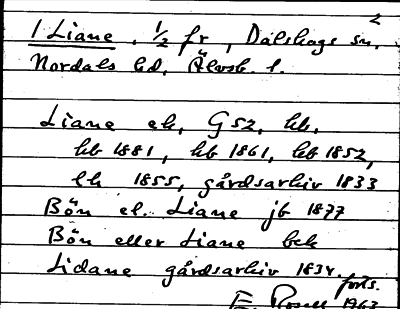 2
1 Liane. 1/2 fr, Dalskogs sn.
Nordals hd, Älvsb. l.
Liane ek, G52, hb,
hb 1881, hb 1861, hb 1852,
lh 1855, gårdsarkiv 1833
Bön el. Liane jb 1877
Bön eller Liane bek
Lidane gårdsarkiv 1834.
forts.
E. Rosell 1963